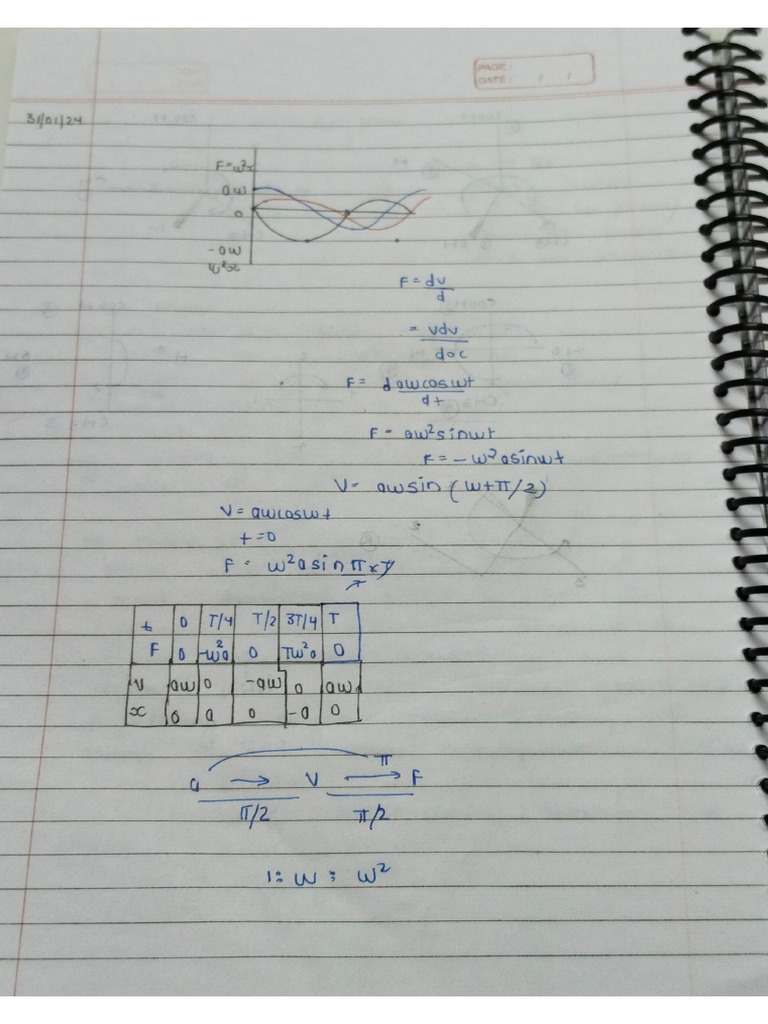 PAGE:
DATE: / /
31/01/24
F=w²x
aw
0
-aw
w²x
F = dv/d
= vdv/doc
F = dawcoswt/dt
F = aw²sinwt
F = -w²asinwt
V = awsin (w+π/2)
V = awcoswt
t=0
F = w²asin π x
t 0 T/4 T/2 3T/4 T
F 0 -w²a 0 Tw²a 0
V aw 0 -aw 0 aw
x 0 a 0 -a 0
π
a → V → F
π/2 π/2
1: w : w²